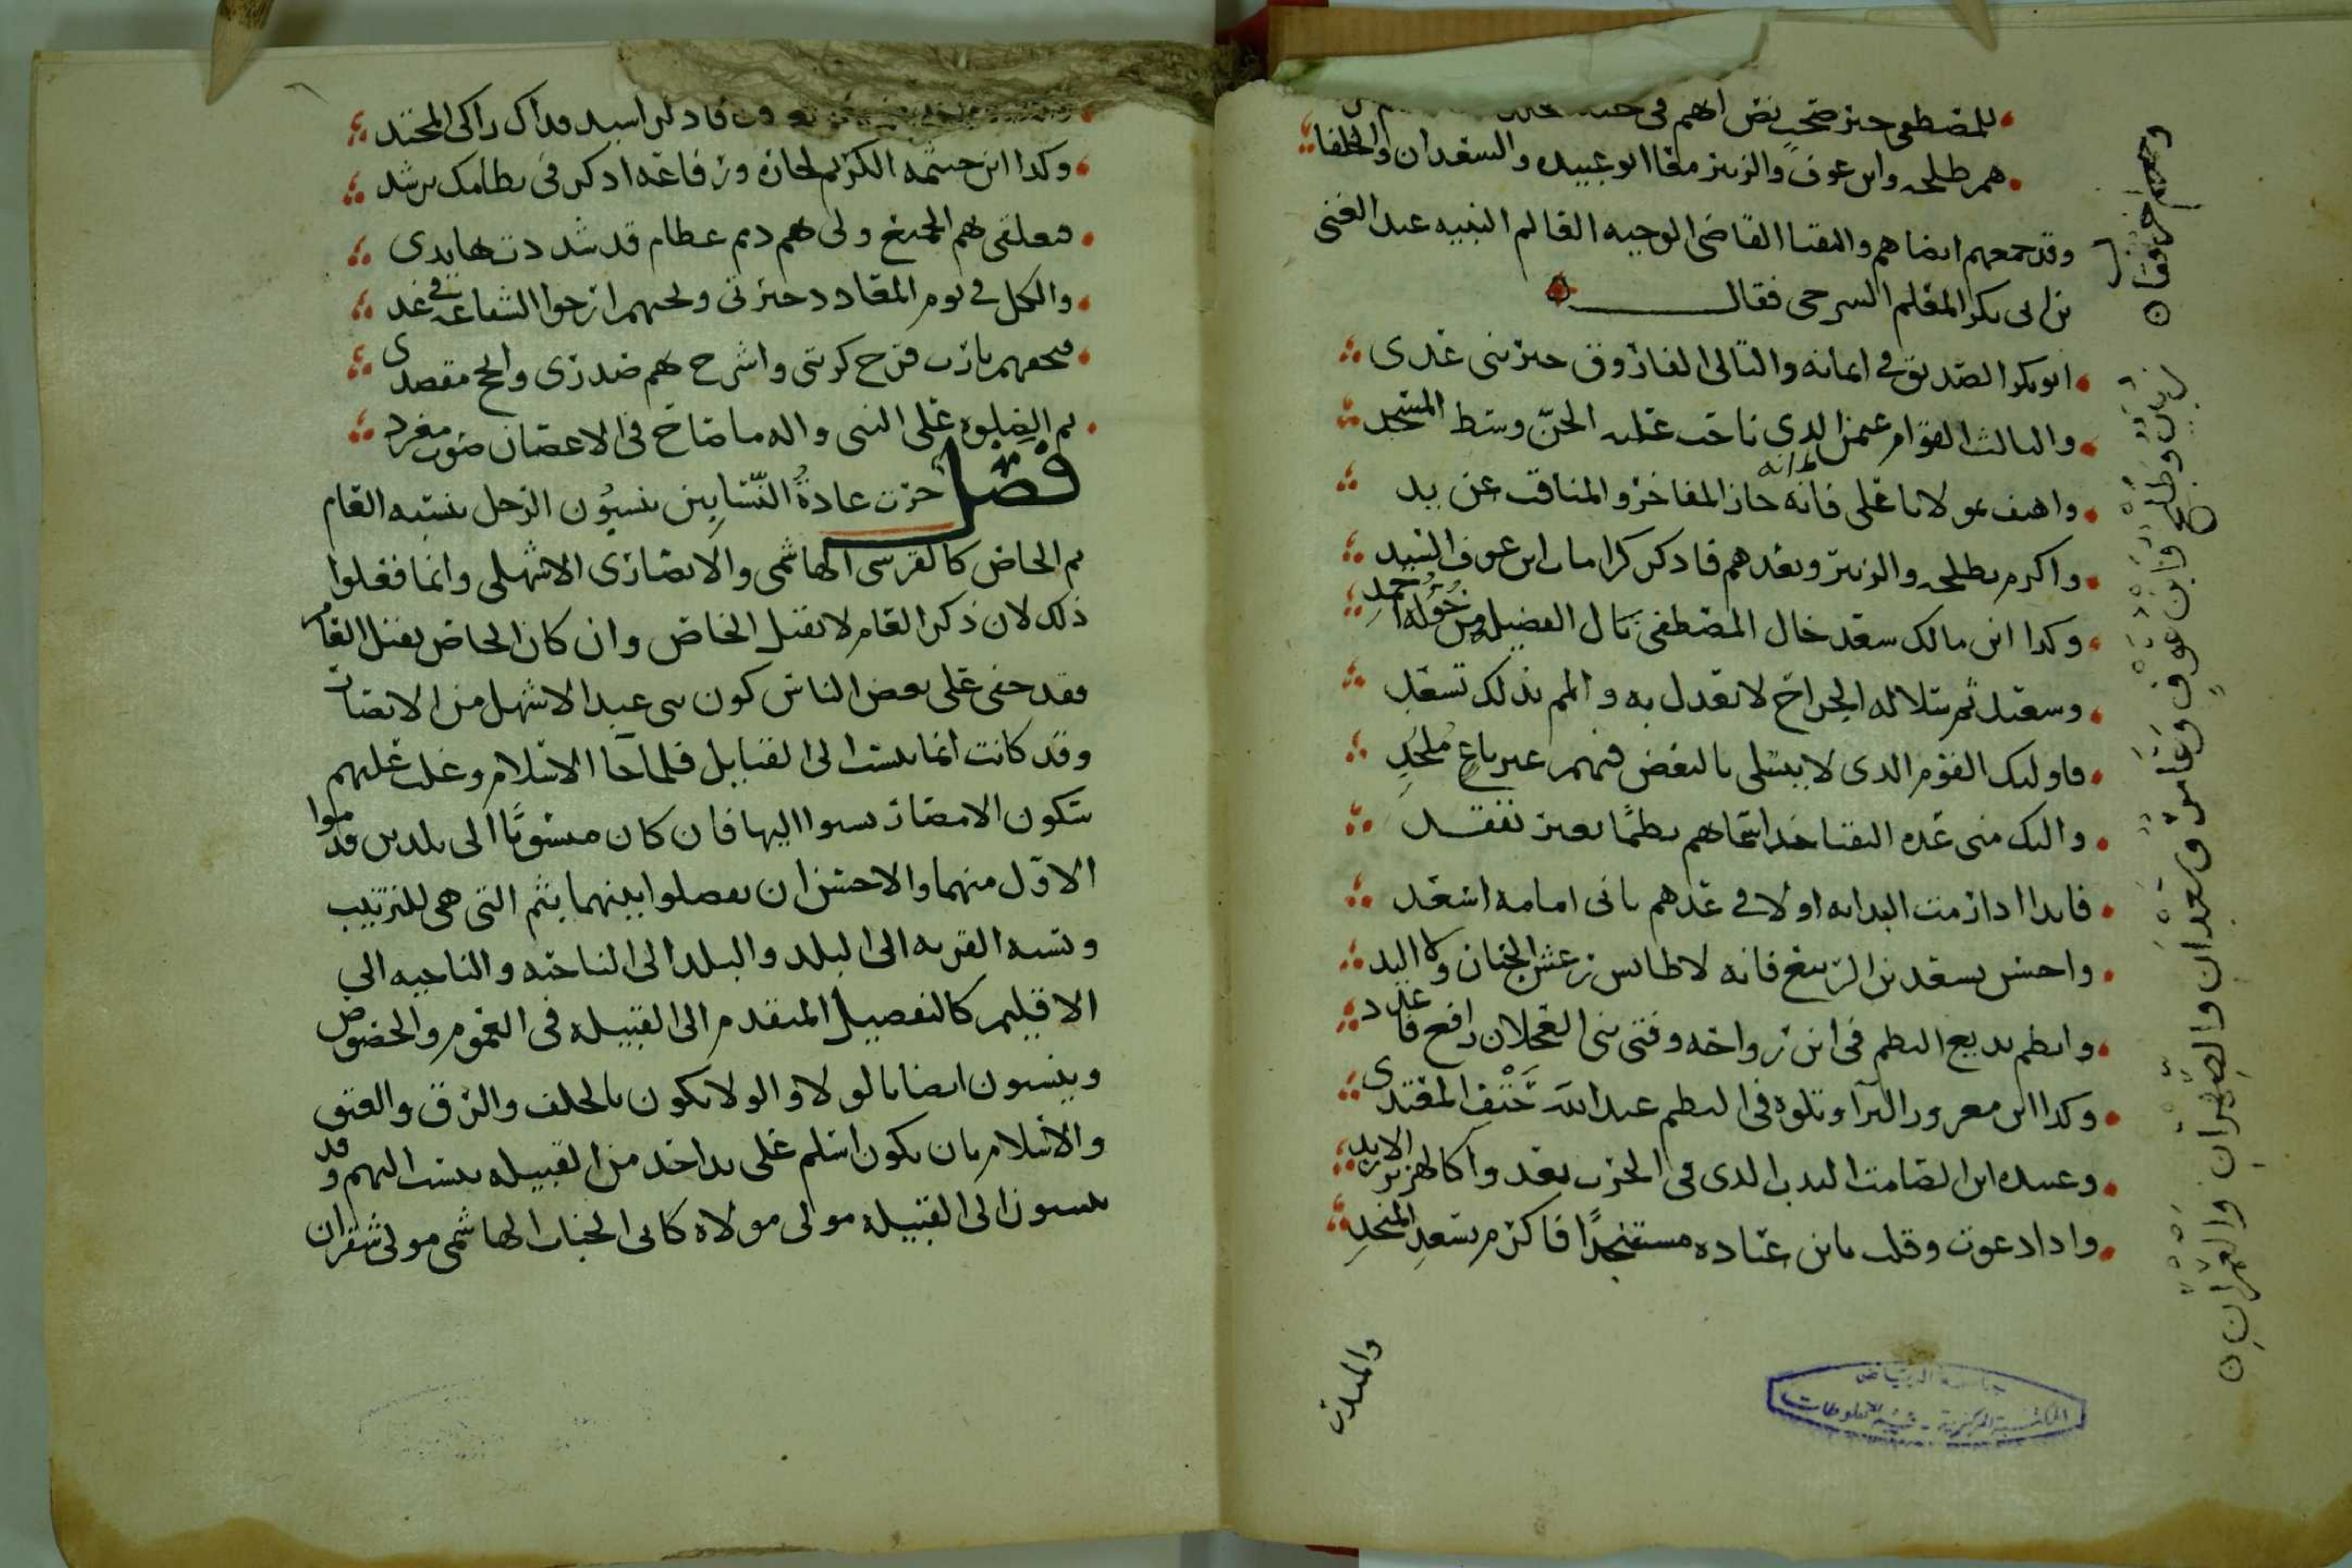 للمصطفى خير صحب نص انهم في جنة الخلد
هم طلحه وابن عوف والزبير مع ابو عبيده والسعدان والخلفا
وقد جمعهم ايضا هم والنقبا القاضي الوجيه العالم النبيه عبد الغني
بن ابي بكر المعلم السرحي فقال
ابوبكر الصديق في ايمانه والتالي الفاروق خير بني عدي
والثالث القوام عثمن الذي ناحت عليه الجن وسط المسجد
واهتف بمولانا علي فانه حاز المفاخر والمناقب عن يد
واكرم بطلحه والزبير وبعدهم فاذكر كرامات ابن عوف السيد
وكذا ابن مالك سعد خال المصطفى نال الفضيله من خؤله احمد
وسعيد ثم بتلا له الجراح لا تعدل به والمم بذلك تسعد
فاوليك القوم الذي لا يبتلى بالبغض فيهم غير باغ ملحد
واليك مني عده النقبا خذ اسماهم نظما بغير تفقد
فابدا اذا رمت البدايه اولا في عدهم بابي امامه اسعد
واحسن بسعد بن الربيع فانه لا طايس رعش الجنان ولا اليد
وانظم بديع النظم في ابن رواحه وفتى بني العجلان رافع فاعدد
وكذا ابن معرور البرآ وتلوه في النظم عبد الله حتف المعتدي
وعباده ابن الصامت الندب الذي في الحرب يعدوا كالهزبر الاربد
واذا دعوت وقلت يابن عباده مستنجدا فاكرم بسعد المنجد
والمنذر
وابن عوف وعامر وسعدان والصهران والعمران
فاذكر اسيد فذاك زاكي المحتد
وكذا ابن خيثمه الكريم نجاره ورفاعه اذكر في نظامك ترشد
فعلقي بهم الجميع ولي بهم ذمم عظام قد شددت بها يدي
والكل في يوم المعاد ذخيرتي وبحبهم ارجوا الشفاعه في غد
فبحقهم يارب فرج كربتي واشرح بهم صدري وانجح مقصدي
ثم الصلوه على النبي واله ما صاح في الاغصان صوت مغرد
فصل جرت عادة النسابين ينسبون الرجل بنسبه العام
ثم الخاص كالقرشي الهاشمي والانصاري الاشهلي وانما فعلوا
ذلك لان ذكر العام لا تقبل الخاص وان كان الخاص يقبل العام
فقد خفي على بعض الناس كون بني عبد الاشهل من الانصار
وقد كانت انما ينسب الى القبايل فلما جا الاسلام وغلب عليهم
سكون الامصار نسبوا اليها فان كان منسوبا الى بلدين قدموا
الاول منهما والاحسن ان يفصلوا بينهما بثم التي هي للترتيب
ونسبه القريه الى البلد والبلد الى الناحيه والناحيه الى
الاقليم كالتفصيل المتقدم الى القبيله في العموم والخصوص
وينسبون ايضا بالولا والولا يكون بالحلف والرق والعتق
والاسلام بان يكون اسلم على يد احد من القبيله ينسب اليهم وقد
ينسبون الى القبيله مولى مولاه كابي الحباب الهاشمي مولى شقران
جامعة الرياض
المكتبة المركزية - قسم المخطوطات